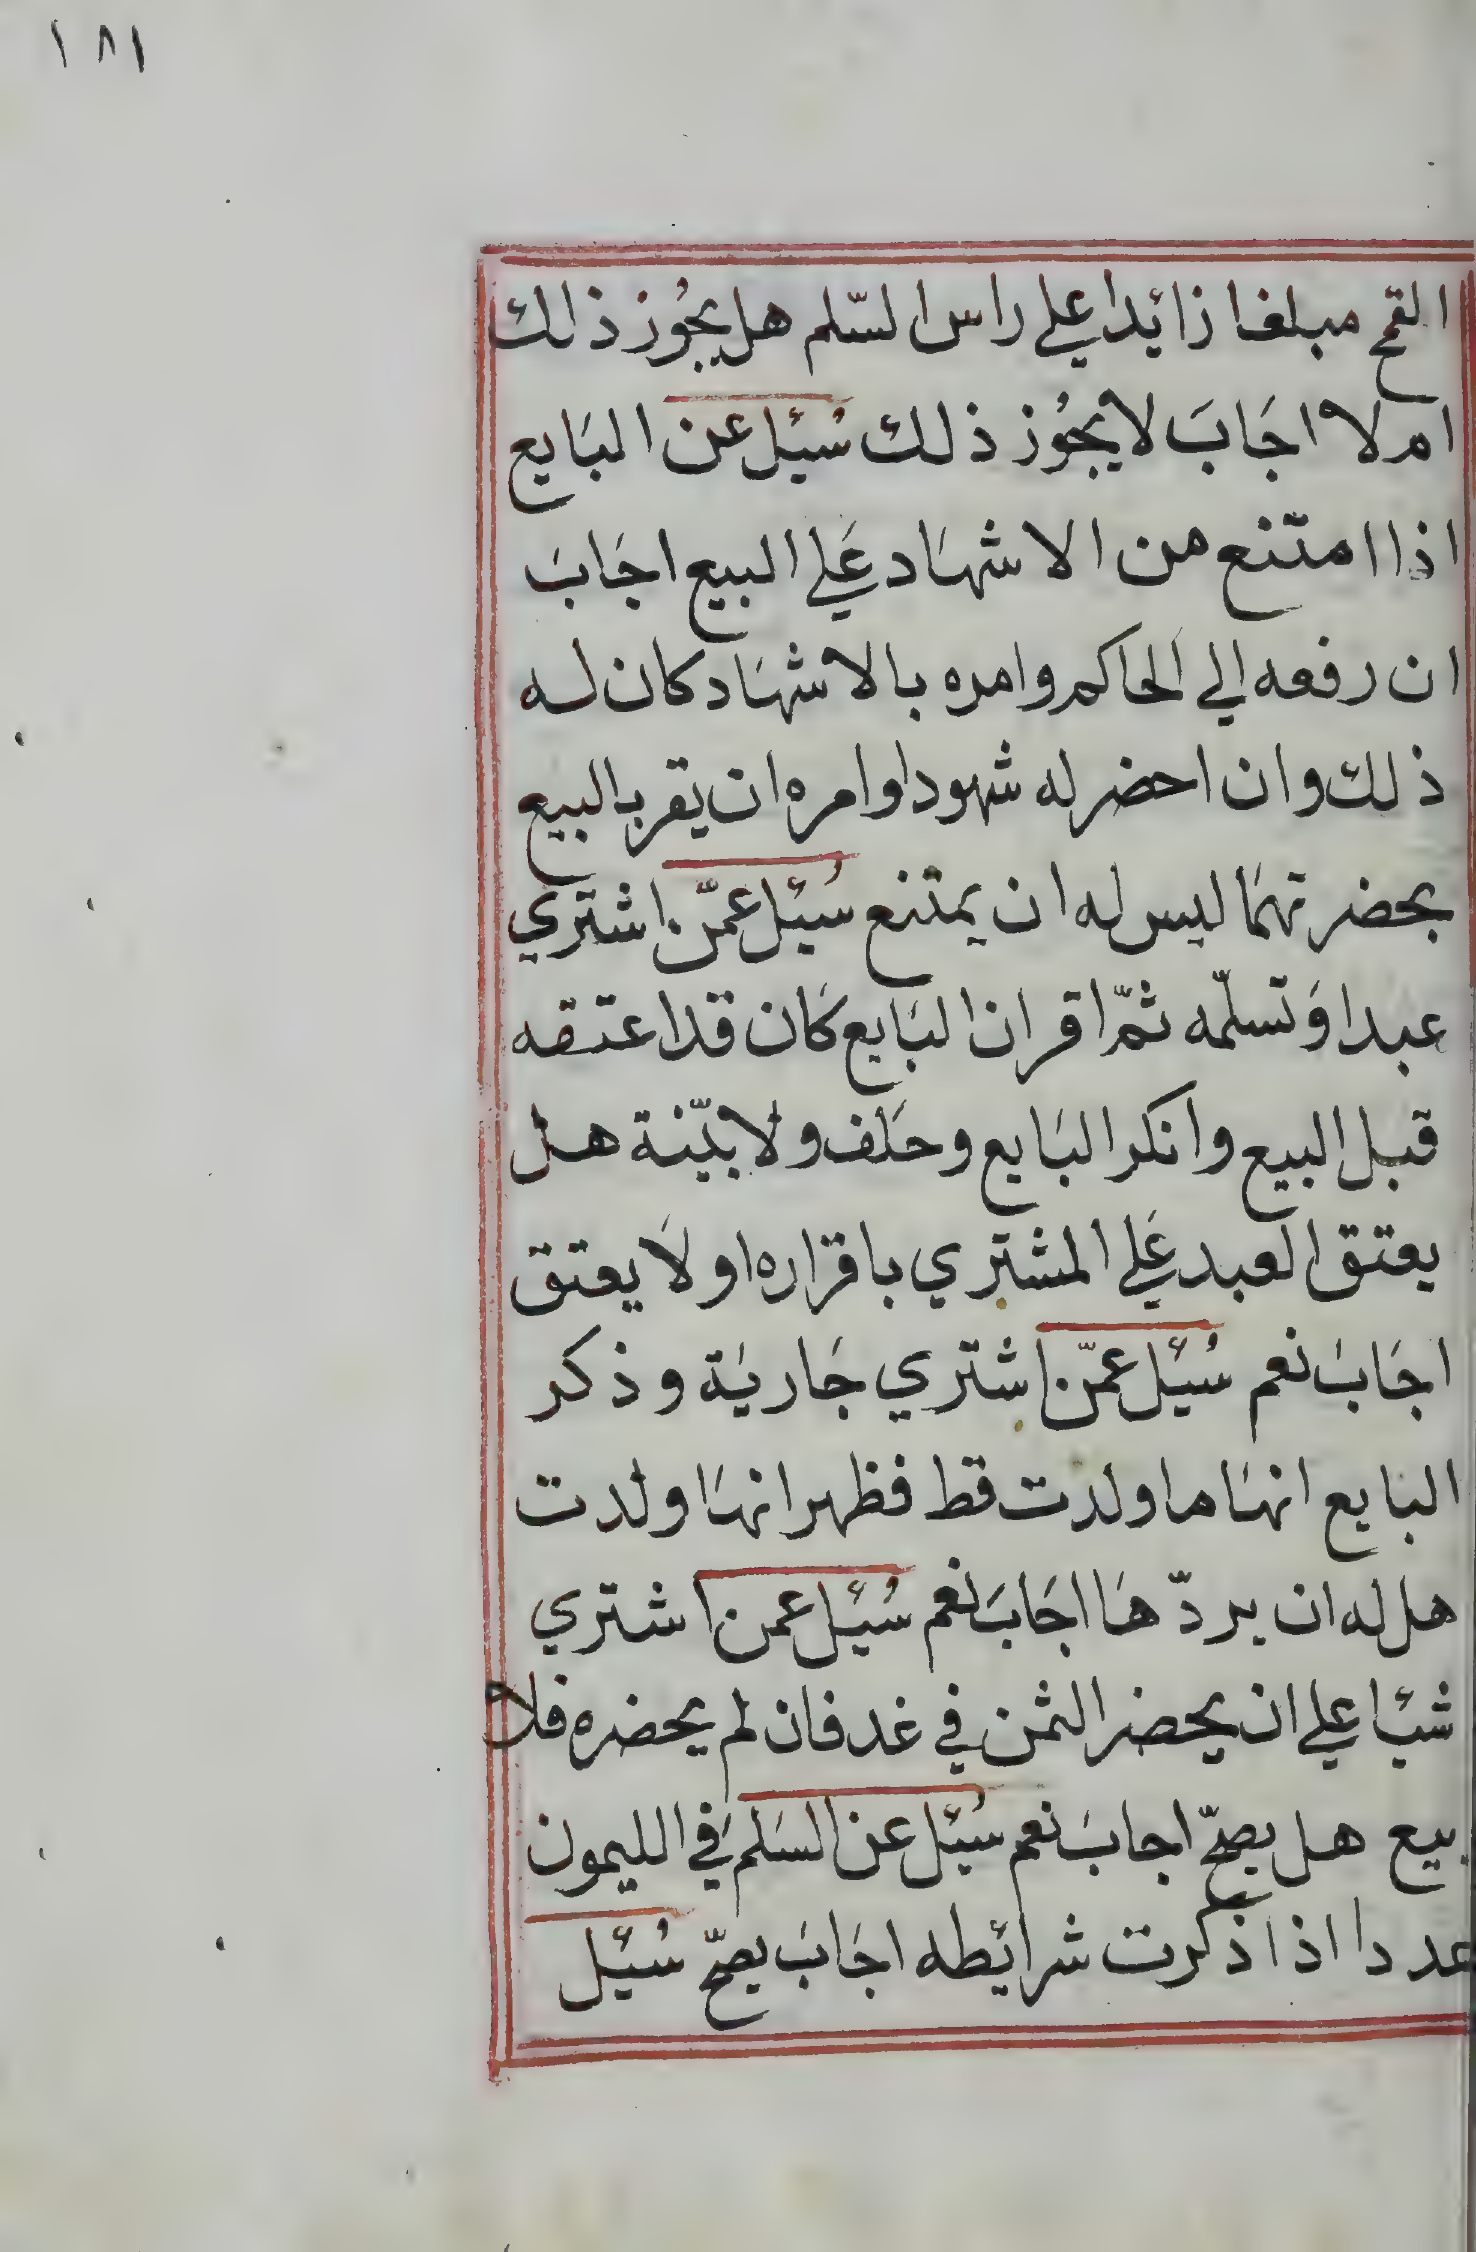 ١٨١
القمح مبلغا زائدا علي راس السّلم هل يجُوز ذلك
ام لا اجَابَ لا يجُوز ذلك سُئيل عن البَايع
اذا امتّنع من الاشهَاد عَلي البيع اجَابَ
ان رفعه الي الحاكم وامره بالاشهَاد كان له
ذلك وان احضر له شهودا وامره ان يقر بالبيع
بحضرتهمَا ليس له ان يمتنع سُئيل عمّن اشتري
عبدا وَتسلّمه ثمّ اقر ان البَايع كَان قد اعتقه
قبل البيع وانكر البَايع وحَلف ولا بيّنة هل
يعتق العبد عَلي المشتري باقراره او لَا يعتق
اجَابَ نعم سُئيل عمّن اشتري جَاريَة وذكر
البايع انهَا ما ولدت قط فظهر انهَا ولدت
هل له ان يردّهَا اجَابَ نعم سُئيل عمن اشتري
شئا علي ان يحضر الثمن في غد فان لم يحضره فلا
بيع هل يصحّ اجابَ نعم سُئيل عن السَلم في الليمون
عددا اذا ذكرت شرائطه اجَابَ يصحّ سُئيل